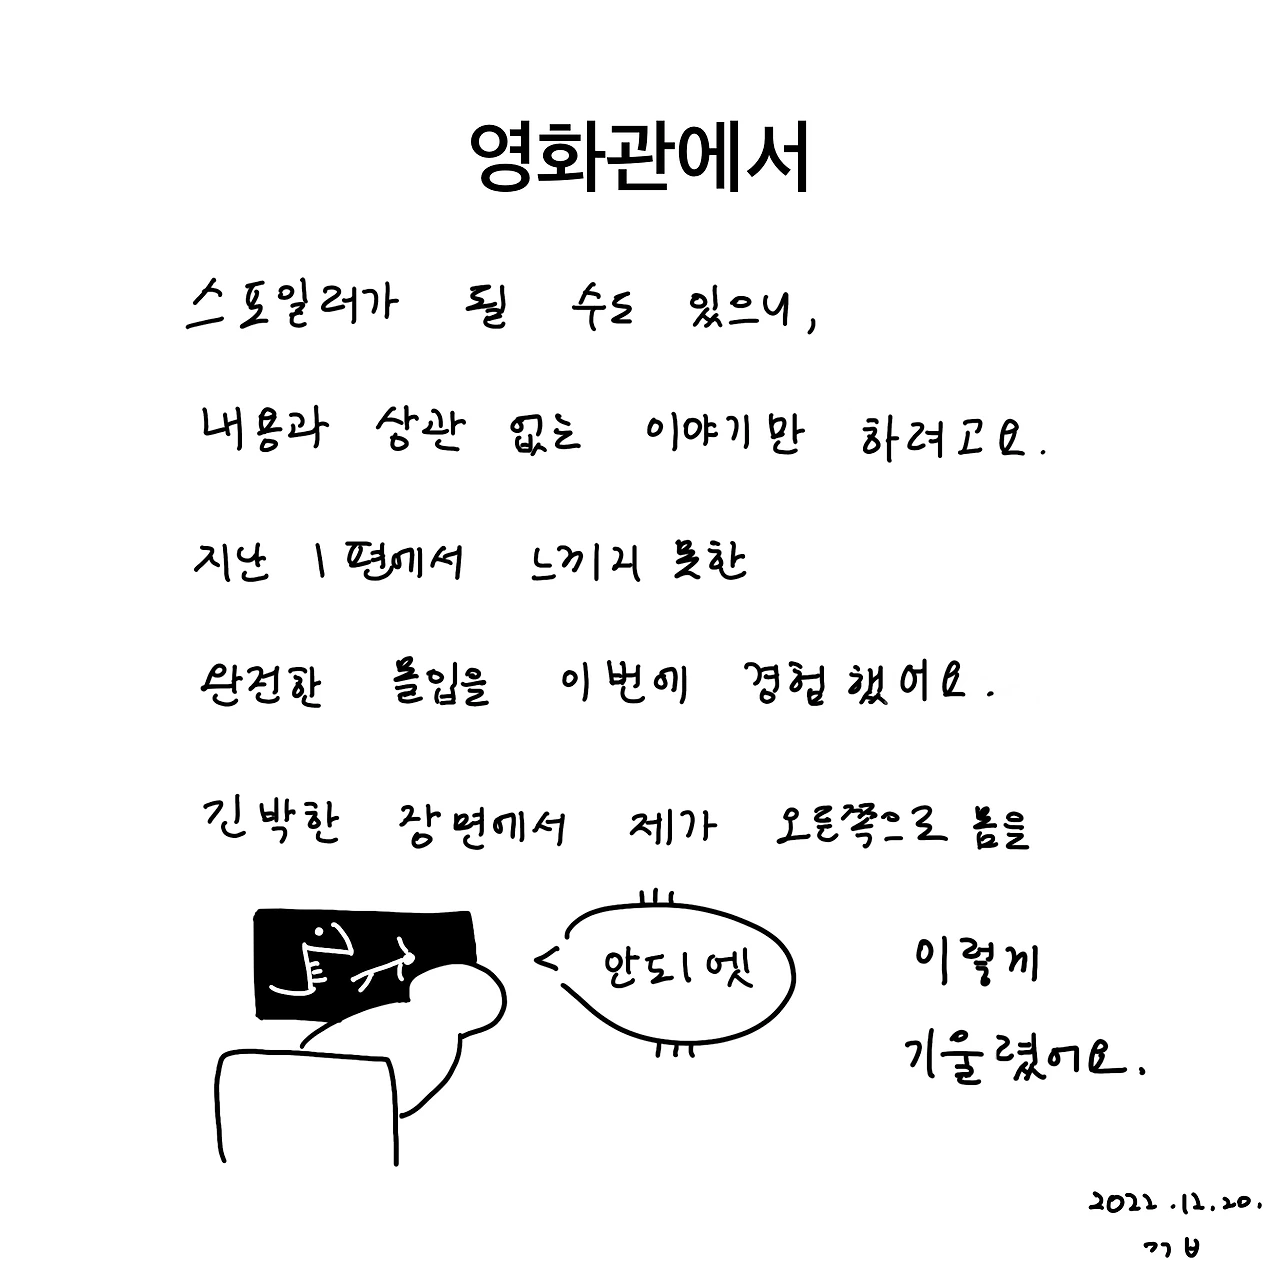 영화관에서
스포일러가 될 수도 있으니,
내용과 상관 없는 이야기만 하려고요.
지난 1편에서 느끼지 못한
완전한 몰입을 이번에 경험했어요.
긴박한 장면에서 제가 오른쪽으로 몸을
안도ㅣ엣
이렇게
기울렸어요.
2022.12.20.
ㄲㅂ